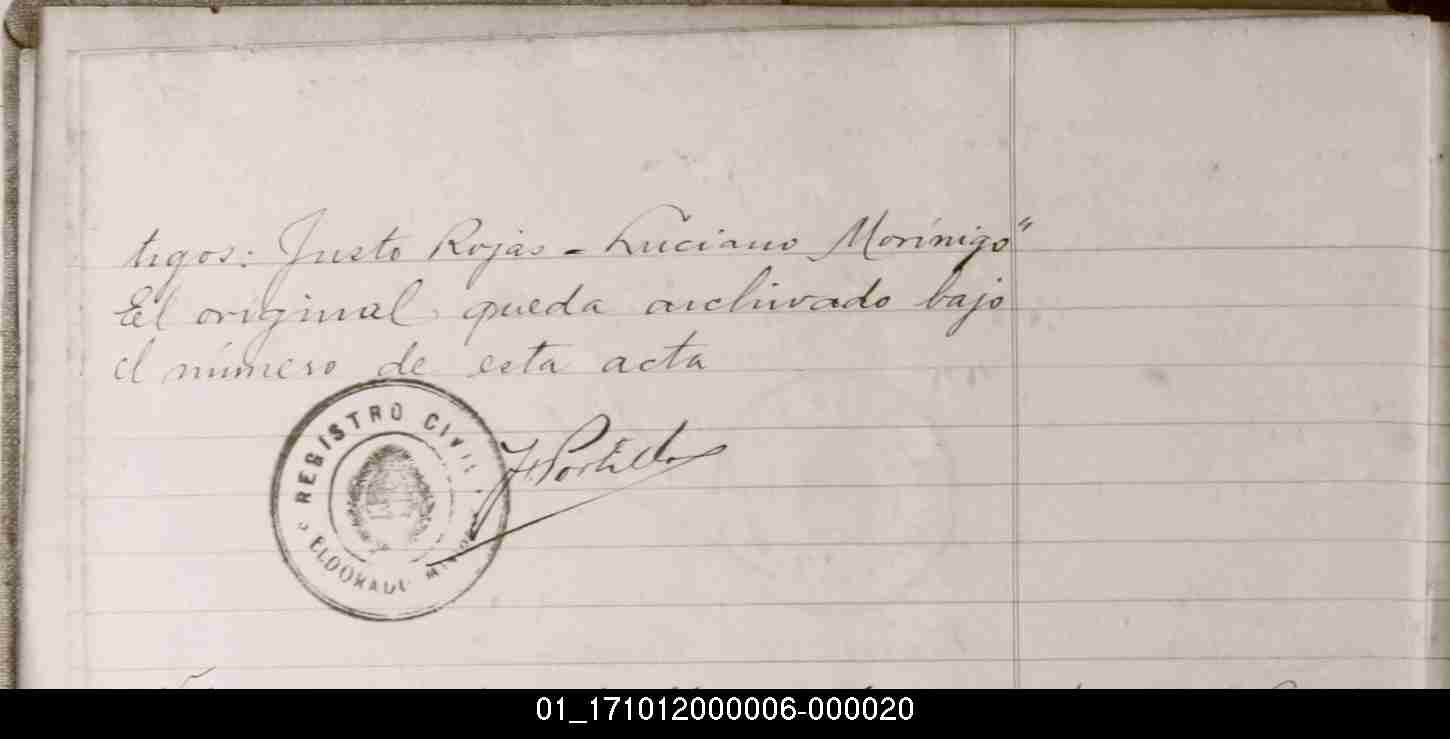 tigos: Justo Rojas - Luciano Morínigo"
El original queda archivado bajo
el número de esta acta
REGISTRO CIVIL
J. Portillo
ELDORADO MISIONES
01_171012000006-000020